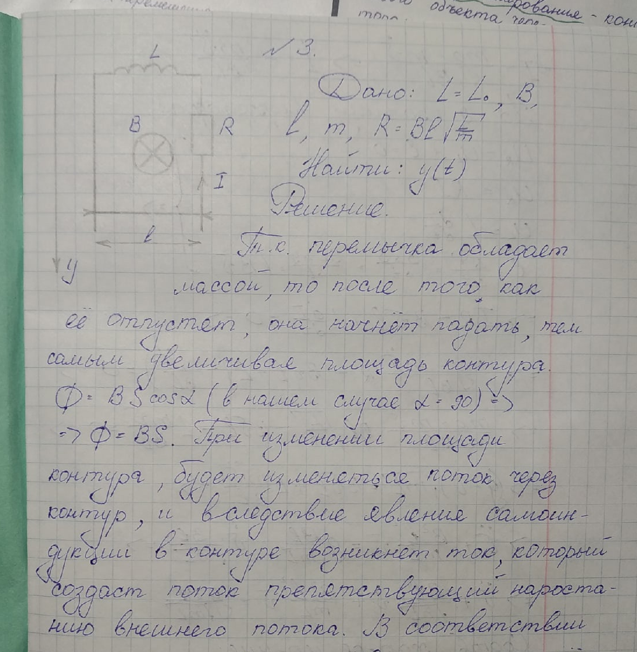 объекта
№3.
L
Дано: L = L₀, B,
B
R
l, m, R = Bl√(L/m)
Найти: y(t)
I
Решение.
l
y
Т.к. перемычка обладает
массой, то после того, как
её отпустят, она начнёт падать, тем
самым увеличивая площадь контура.
Ф = BScosα (в нашем случае α = 90) =>
=> Ф = BS. При изменении площади
контура, будет изменяться поток через
контур, и вследствие явления самоин-
дукции в контуре возникнет ток, который
создаст поток препятствующий нароста-
нию внешнего потока. В соответствии